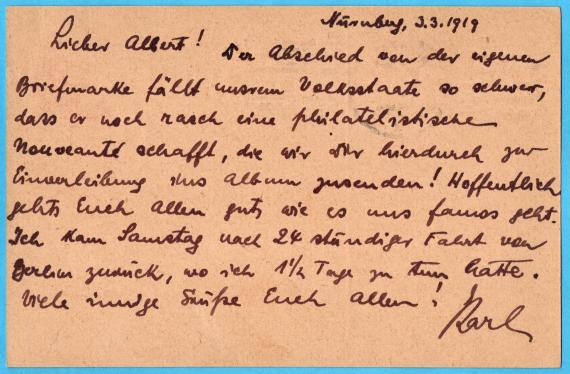 Nürnberg, 3.3.1919
Lieber Albert! Der Abschied von der eigenen
Briefmarke fällt unsrem Volksstaate so schwer,
dass er noch rasch eine philatelistische
Nouveauté schafft, die wir Dir hierdurch zur
Einverleibung ins Album zusenden! Hoffentlich
gehts Euch Allen gut, wie es uns famos geht.
Ich kam Samstag nach 24 stündiger Fahrt von
Berlin zurück, wo ich 1½ Tage zu tun hatte.
Viele innige Grüße Euch Allen!
Karl